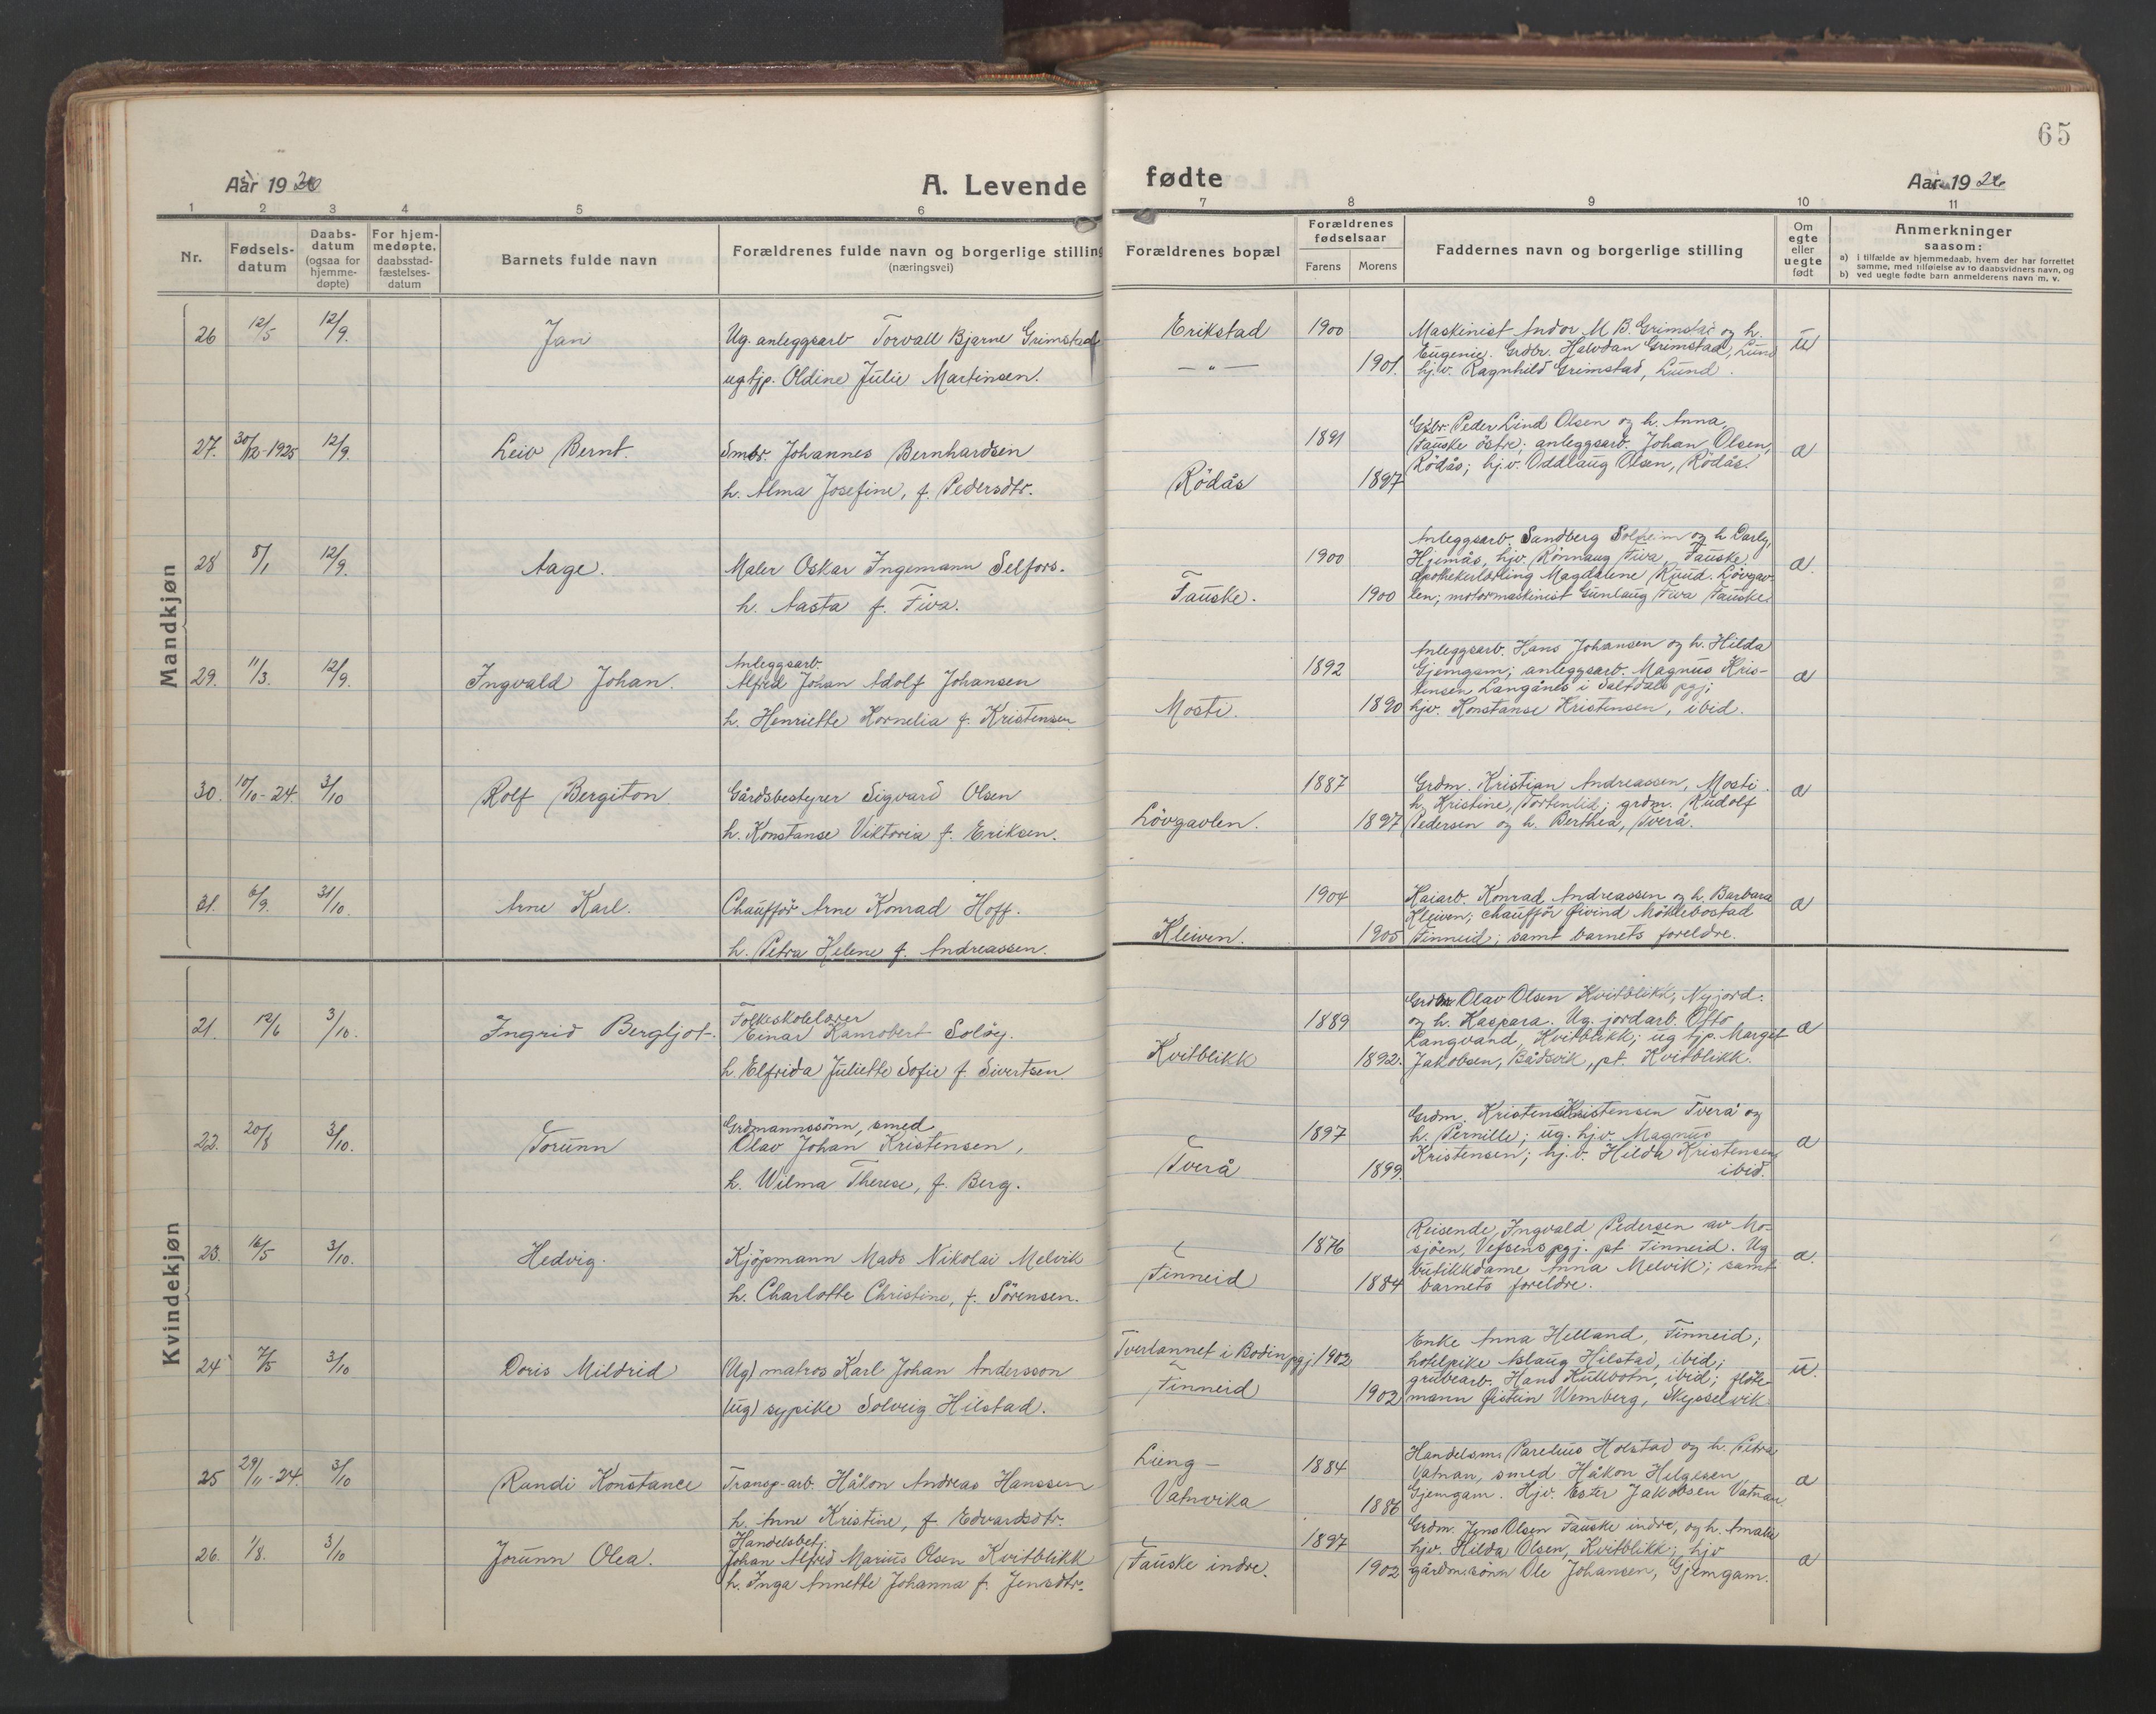 65
Aar 1926
A. Levende fødte
Aar 1926
1 2 3 4 5 6 7 8 9 10 11
Nr.
Fødsels-
datum
Daabs-
datum
(ogsaa for
hjemme-
døpte)
For hjem-
medøpte,
daabsstad-
fæstelses-
datum
Barnets fulde navn
Forældrenes fulde navn og borgerlige stilling
(næringsvei)
Forældrenes bopæl
Forældrenes
fødselsaar
Farens
Morens
Faddernes navn og borgerlige stilling
Om
egte
eller
uegte
født
Anmerkninger
saasom:
a) i tilfælde av hjemmedaab, hvem der har forrettet
samme, med tilføielse av to daabsvidners navn, og
b) ved uegte fødte barn anmelderens navn m. v.
Mandkjøn
26 12/5 12/9. Jan
Ug. anleggsarb Torvall Bjarne Grimstad
ug tjp. Oldine Julie Martinsen.
Erikstad 1900
— " — 1901.
Maskinist Andor M. B. Grimstad og h.
Eugenie. Grdbr. Halvdan Grimstad, Lund
hj.v. Ragnhild Grimstad, Lund.
u
27. 30/12-1925 12/9. Leiv Bernt.
Smbr. Johannes Bernhardsen
h. Alma Josefine, f. Pedersdtr.
1891
Rödås 1897
Gbr. Peder Lind Olsen og h. Anna,
Fauske östre; anleggsarb. Johan Olsen,
Rödås; hj.v. Oddlaug Olsen, Rödås.
a
28 8/1 12/9. Aage.
Maler Oskar Ingemann Selfors.
h. Aasta f. Fiva.
1900
Fauske. 1900
Anleggsarb. Sandberg Solheim og h Darly,
Hjemås, hjv. Rönnaug Fiva, Fauske.
apothekerlærling Magdalene Ruud. Lövgav-
len; motormaskinist Gunlaug Fiva Fauske.
a.
29. 11/3. 12/9. Ingvald Johan.
Anleggsarb.
Alfred Johan Adolf Johansen
h. Henriette Kornelia f. Kristensen
1892
Mosti. 1890
Anleggsarb. Hans Johansen og h. Hilda
Gjemgam; anleggsarb. Magnus Kris-
tensen Langånes i Saltdals pgj;
hjv. Konstanse Kristensen, ibid.
a
30. 10/10-24. 3/10 Rolf Bergiton
Gårdsbestyrer Sigvard Olsen
h. Konstanse Viktoria f. Eriksen.
1887
Lövgavlen. 1897
Grdm. Kristian Andreassen, Mosti.
h. Kristine, Tortenlid; grdm. Rudolf
Pedersen og h. Berthea, Tverå.
a
31. 6/9. 31/10. Arne Karl.
Chaufför Arne Konrad Hoff.
h. Petra Helene f. Andreassen.
1904
Kleiven. 1905
Kaiarb. Konrad Andreassen og h. Barbara
Kleiven; chaufför Øivind Möklebostad
Finneid; samt barnets foreldre.
a
Kvindekjøn
21. 12/6 3/10. Ingrid Bergljot.
Folkeskolelærer
Einar Kanrobert Solöy.
h. Elfrida Juliette Sofie f. Sivertsen
1889
Kvitblikk 1892.
Olav Olsen Kvitblikk, Nyjord.
og h. Kaspara. Ug. jordarb. Otto
Langvand, Kvitblikk; ug tjp. Margit
Jakobsen, Bådsvik, pt. Kvitblikk.
a
22. 20/8 3/10. Torunn
Grdmannssönn, smed
Olav Johan Kristensen,
h. Wilma Therese, f. Berg.
1897
Tverå 1899.
Grdm. Kristen Kristensen Tverå og
h. Pernille; ug. hjv. Magnus
Kristensen; hj.v. Hilda Kristensen
ibid.
a
23. 16/5 3/10. Hedvig.
Kjöpmann Mads Nikolai Melvik
h. Charlotte Christine, f. Sörensen.
1876
Finneid 1884
Reisende, Ingvald Pedersen av Mo-
sjöen, Vefsens pgj. pt Finneid. Ug
butikkdame Anna Melvik; samt
barnets foreldre.
a.
24 7/5 3/10 Doris Mildrid
(Ug) matros Karl Johan Andersson
(ug) sypike Solveig Hilstad.
Tverlannet i Bodin pgj. 1902
Finneid 1902
Enke Anna Helland, Finneid;
hotelpike Aslaug Hilstad, ibid;
grubearb. Hans Kullbotn, ibid; flöte-
mann Øistein Wemberg, Skysselvik.
u.
25 29/11-24. 3/10 Randi Konstance
Transp.arb. Håkon Andreas Hanssen
h. Anne Kristine, f. Edvardsdtr.
Lieng – 1884
Vatnvika 1886
Handelsm. Parelius Holstad og h. Petra
Vatnan, smed Håkon Helgesen
Gjemgam. Hjv. Ester Jakobsen Vatnan
a
26. 1/8. 3/10 Jorunn Olea.
Handelsbetj.
Johan Alfred Marius Olsen Kvitblikk
h. Inga Annette Johanna f. Jensdtr.
1897
Fauske indre. 1902
Grdm. Jens Olsen Fauske indre, og h. Amalie
hjv. Hilda Olsen, Kvitblikk; hjv
gårdm.sönn Ole Johansen, Gjemgam.
a